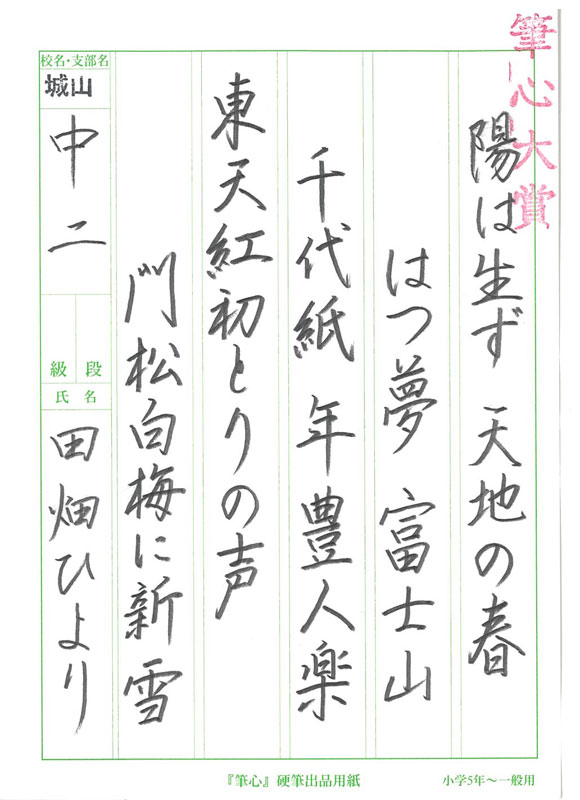 筆心大賞
陽は生ず 天地の春
はつ夢 富士山
千代紙 年豊人楽
東天紅初とりの声
門松白梅に新雪
校名・支部名
城山
中二
級 段
氏名
田畑ひより
『筆心』硬筆出品用紙
小学5年〜一般用